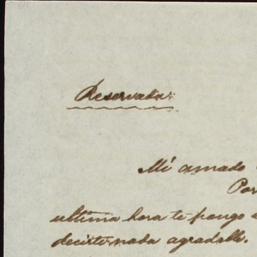 Reservada:
Mi amado
Por
ultima hora te pongo
decirte nada agradable.